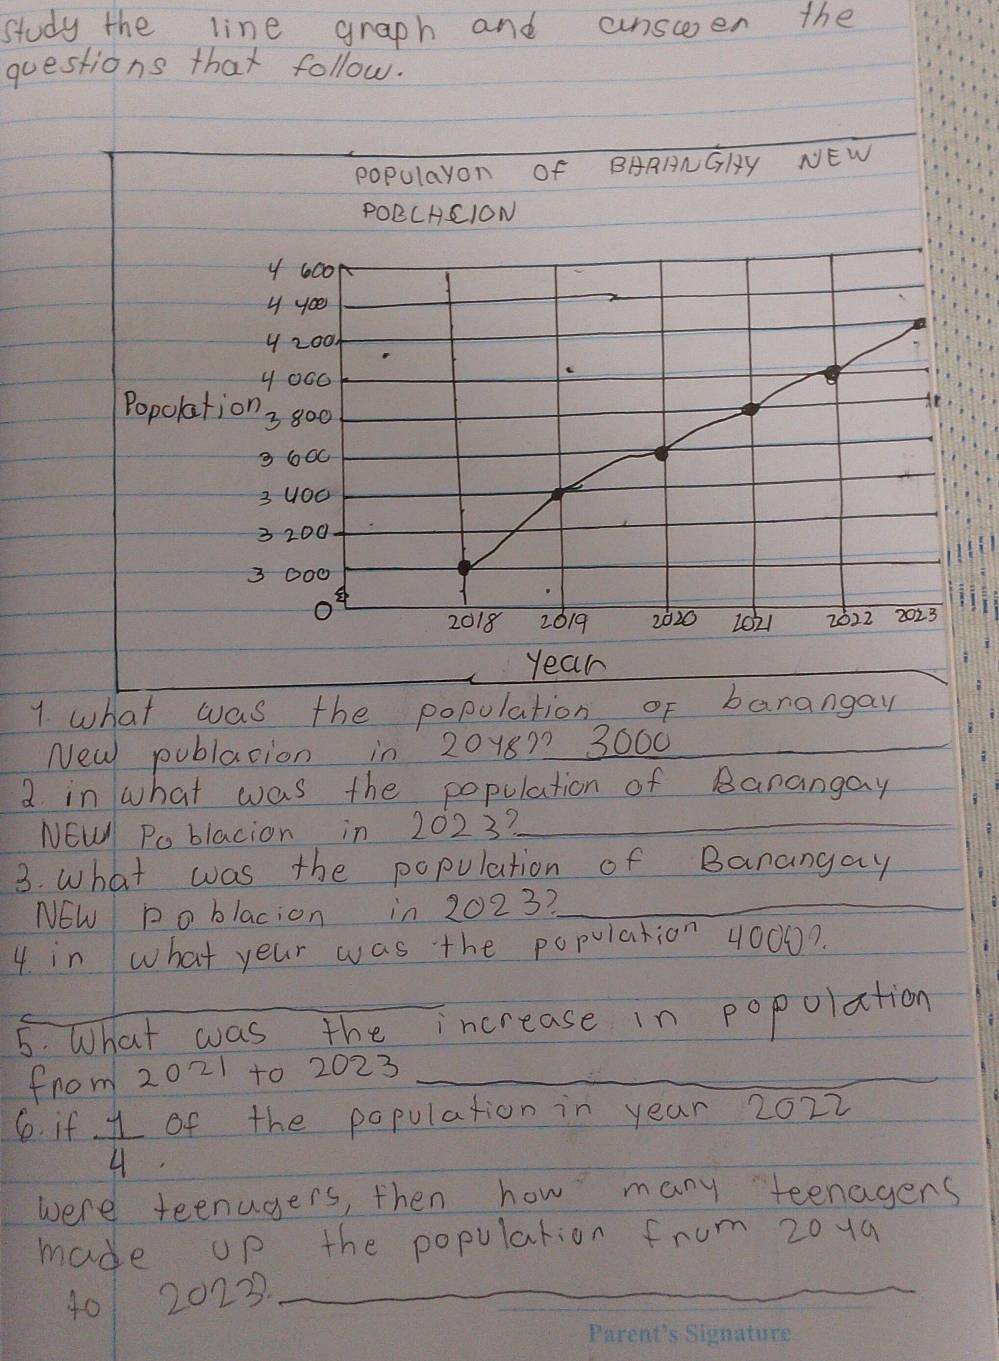 study the line graph and answer the
questions that follow.
populayon of BARANGAY NEW
POBLACION
4 600
4 400
4 200
4 000
Population
3 800
3 600
3 400
3 200
3 000
0
2018 2019 2020 2021 2022 2023
Year
1. what was the population of barangay
New publacion in 2018?? 3000
2. in what was the population of Barangay
NEW Poblacion in 2023?
3. what was the population of Barangay
NEW Poblacion in 2023?
4. in what year was the population 4000?.
5. What was the increase in population
from 2021 to 2023
6. if 1/4 of the population in year 2022
were teenagers, then how many teenagers
made up the population from 2019
to 2023?.
Parent's Signature